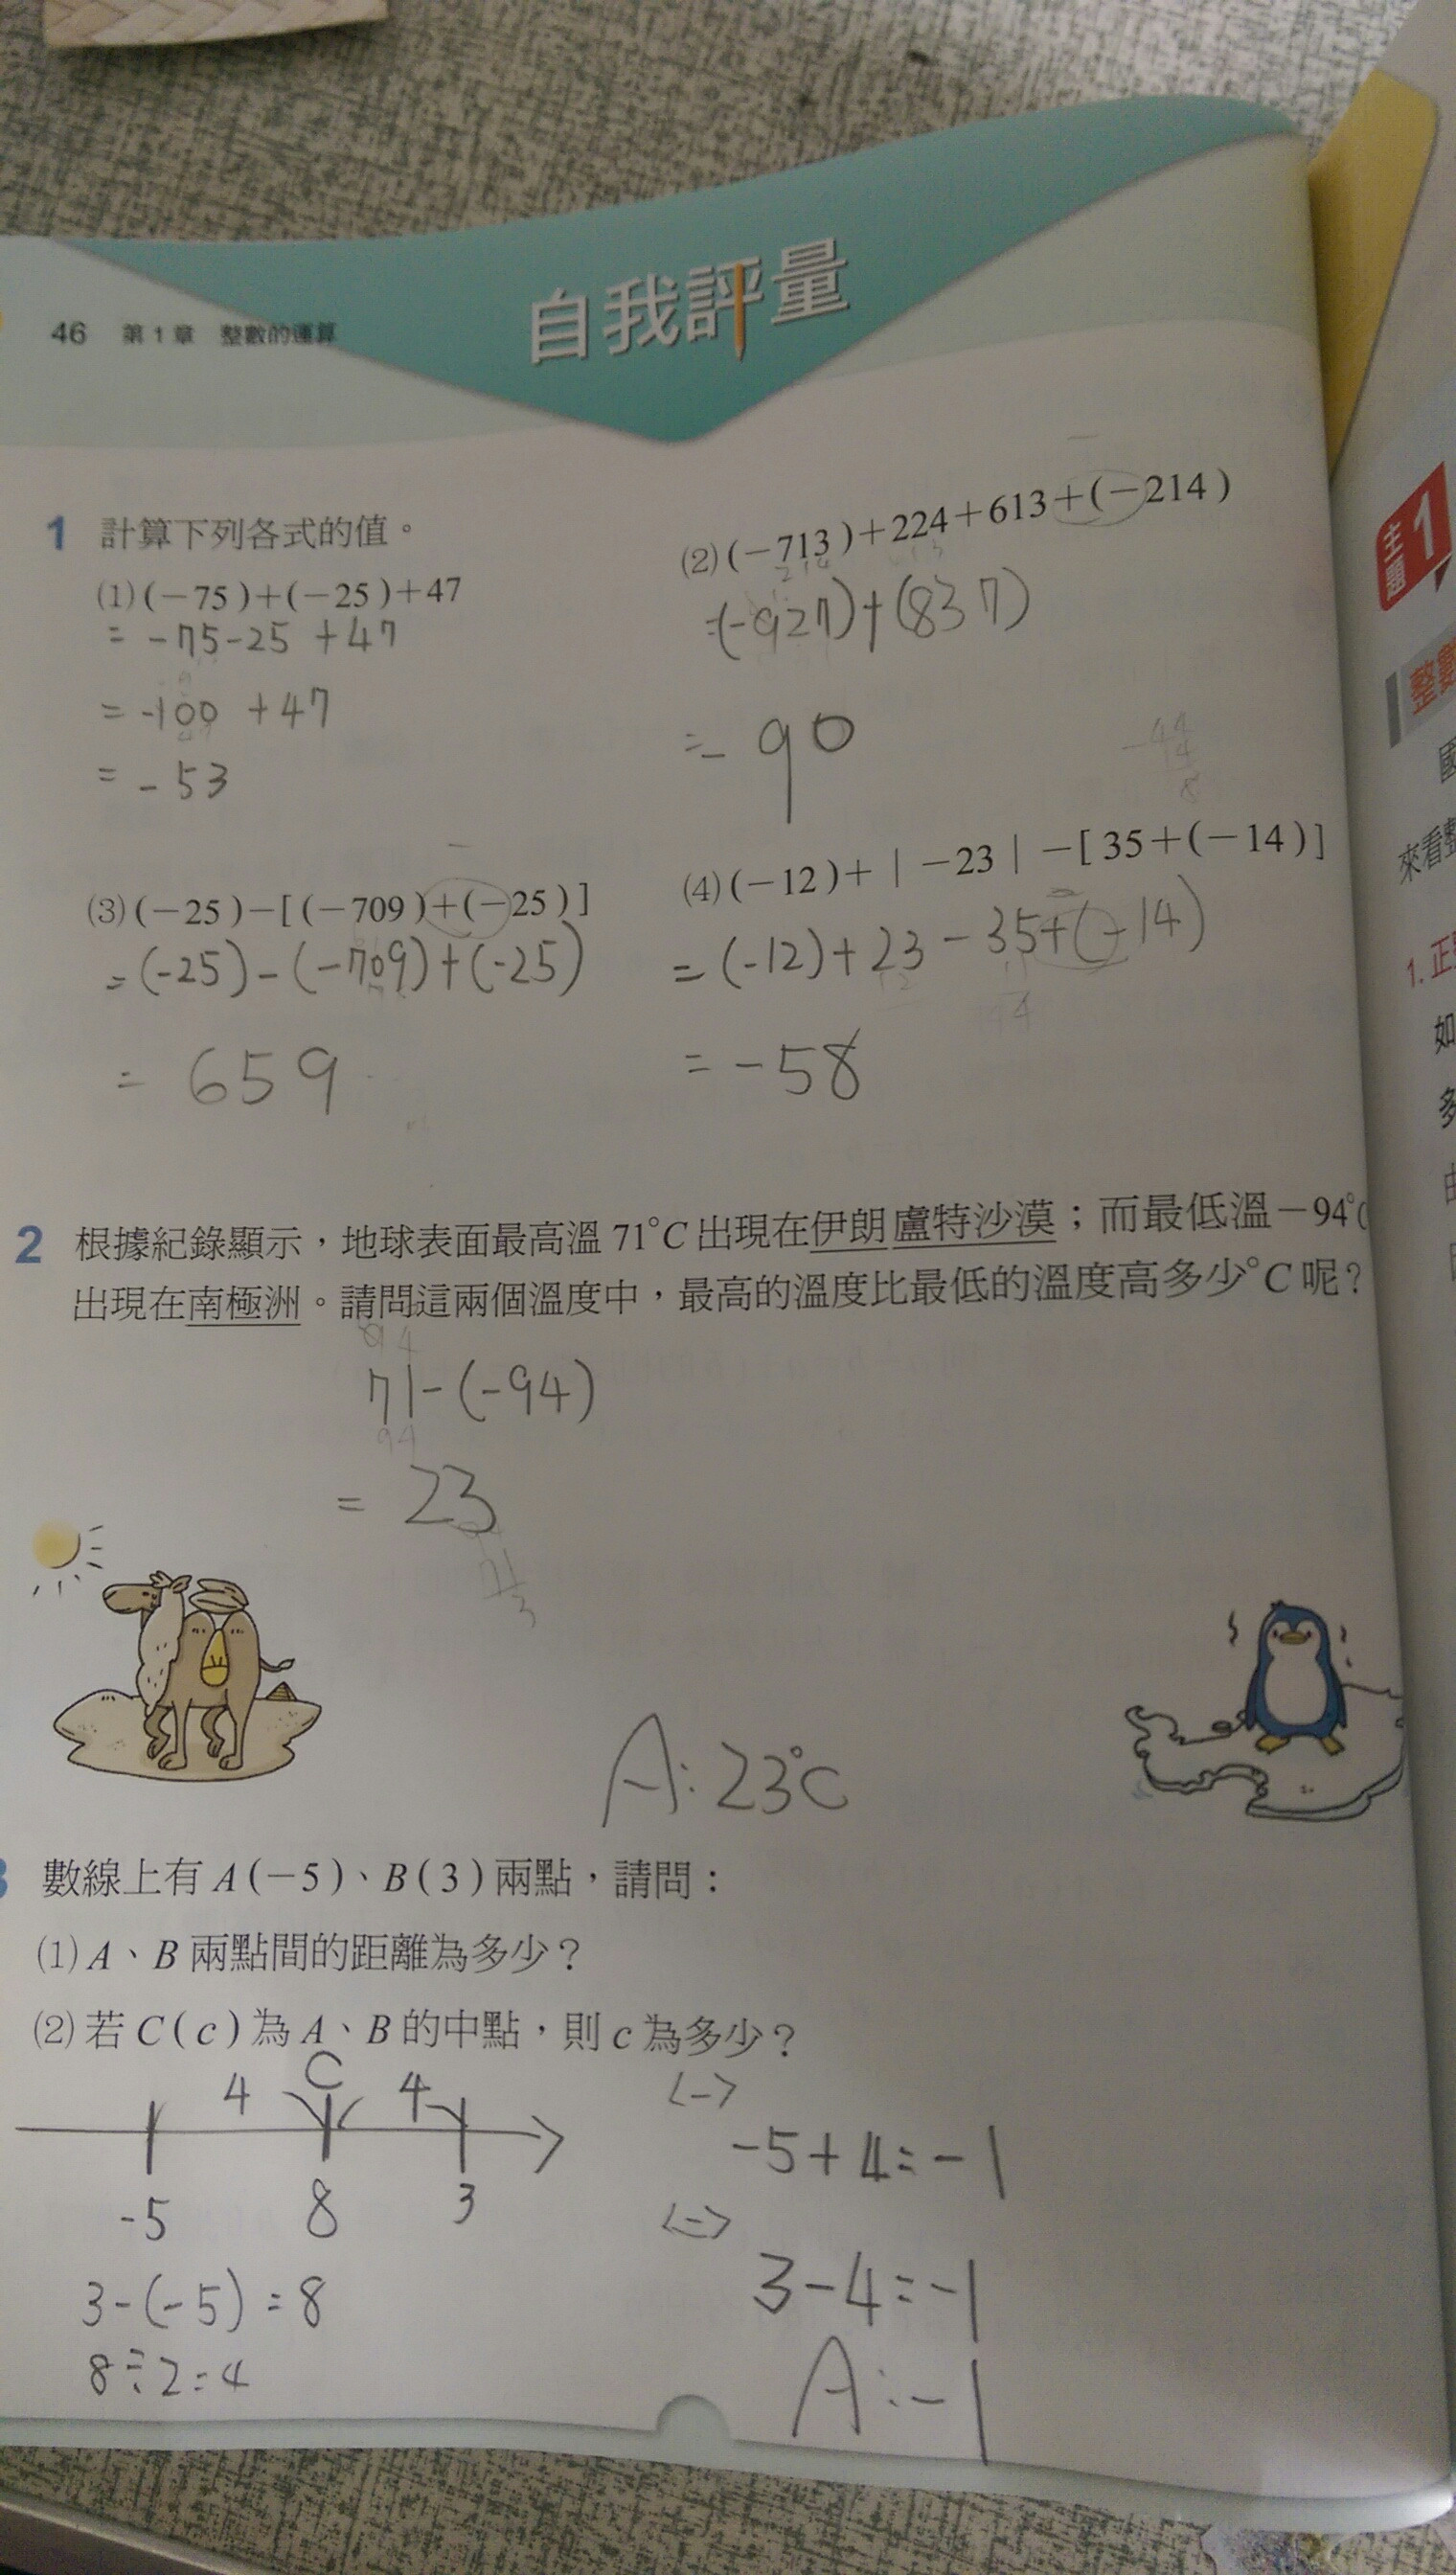 自我評量
46 第1章 整數的運算
1 計算下列各式的值。
(1)(-75)+(-25)+47
= -75-25 +47
= -100 +47
= -53
(2)(-713)+224+613+(-214)
=(-927)+(837)
=- 90
(3)(-25)-[(-709)+(-25)]
=(-25)-(-709)+(-25)
= 659
(4)(-12)+|-23|-[35+(-14)]
=(-12)+23-35+(-14)
= -58
2 根據紀錄顯示,地球表面最高溫71°C出現在伊朗盧特沙漠;而最低溫-94°C
出現在南極洲。請問這兩個溫度中,最高的溫度比最低的溫度高多少°C呢?
71-(-94)
= 23
A:23°C
3 數線上有A(-5)、B(3)兩點,請問:
(1)A、B兩點間的距離為多少?
(2)若C(c)為A、B的中點,則c為多少?
4 C 4
-5 8 3
3-(-5)=8
8÷2=4
<一>
-5+4=-1
<二>
3-4=-1
A:-1
主題1
整數
國
來看整
1.正
如
多